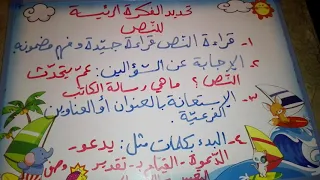 تحديد الفكرة الرئيسة
للنص
١- قراءة النّص قراءة جيّدة وفهم مضمونه
٢- الإجابة عن السّؤالين: عمّ يتحدّث
النّص؟ ما هي رسالة الكاتب
٣- الإستعانة بالعنوان أو العناوين
الفرعيّة
٤- البدء بكلمات مثل: يدعو -
الدّعوة - القيام بـ - تقدير
وصف